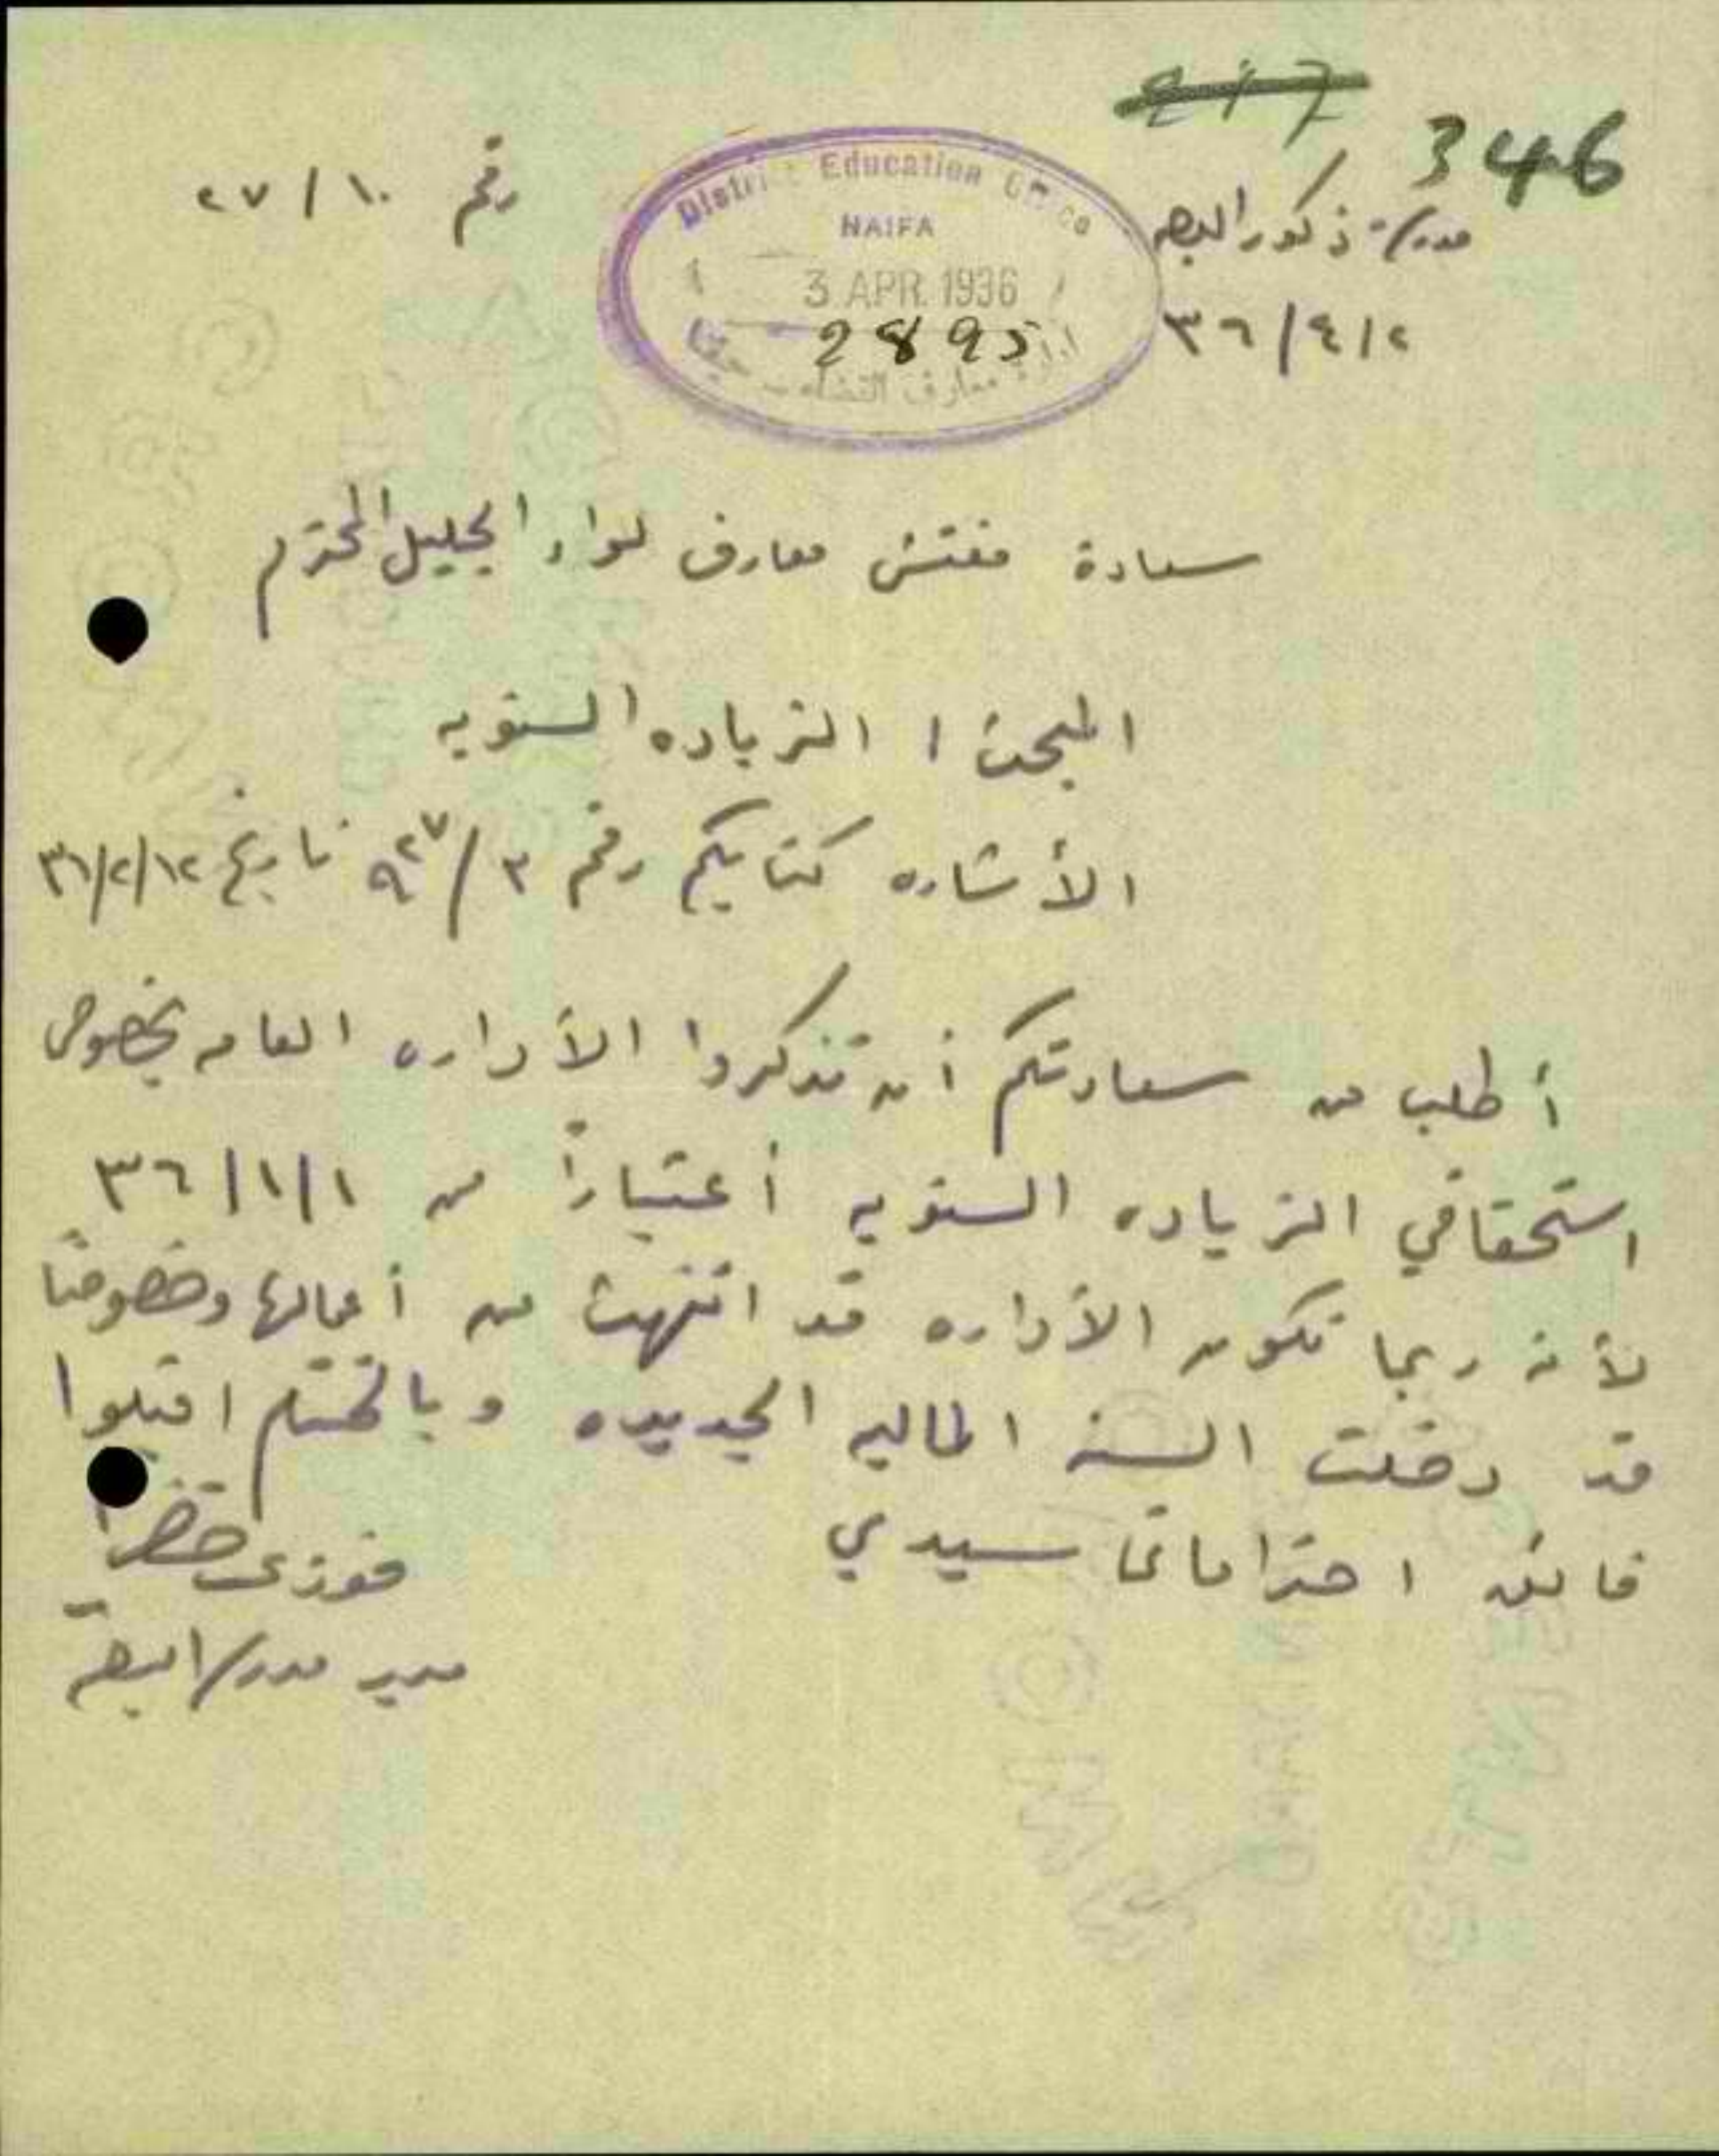 346
مدرسة ذكور البصه
رقم ٢٧/١٠
District Education Office
HAIFA
3 APR 1936
2895
ادارة معارف القضاء - حيفا
٣٦/٤/٢
سعادة مفتش معارف لواء الجليل المحترم
المبحث / الزياده السنويه
الأشاره كتابكم رقم ٣/٩٢٧ تاريخ ٣٦/٢/١٢
أطلب من سعادتكم أن تذكروا الأداره العامه بخصوص
استحقاقي الزياده السنويه أعتباراً من ٣٦/١/١
لأنه ربما تكون الأداره قد انتهت من أعمالها وخصوصاً
قد دخلت السنه الماليه الجديده وبالختام اقبلوا
فائق احتراماتي سيدي
فوزي خضرا
مدير مدرسة البصه